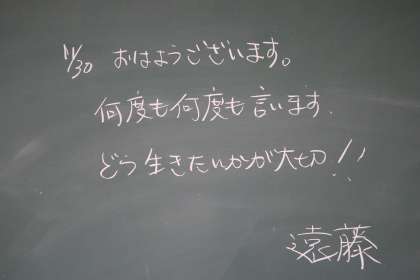 11/30 おはようございます。
何度も何度も言います.
どう生きたいかが大切!!
遠藤